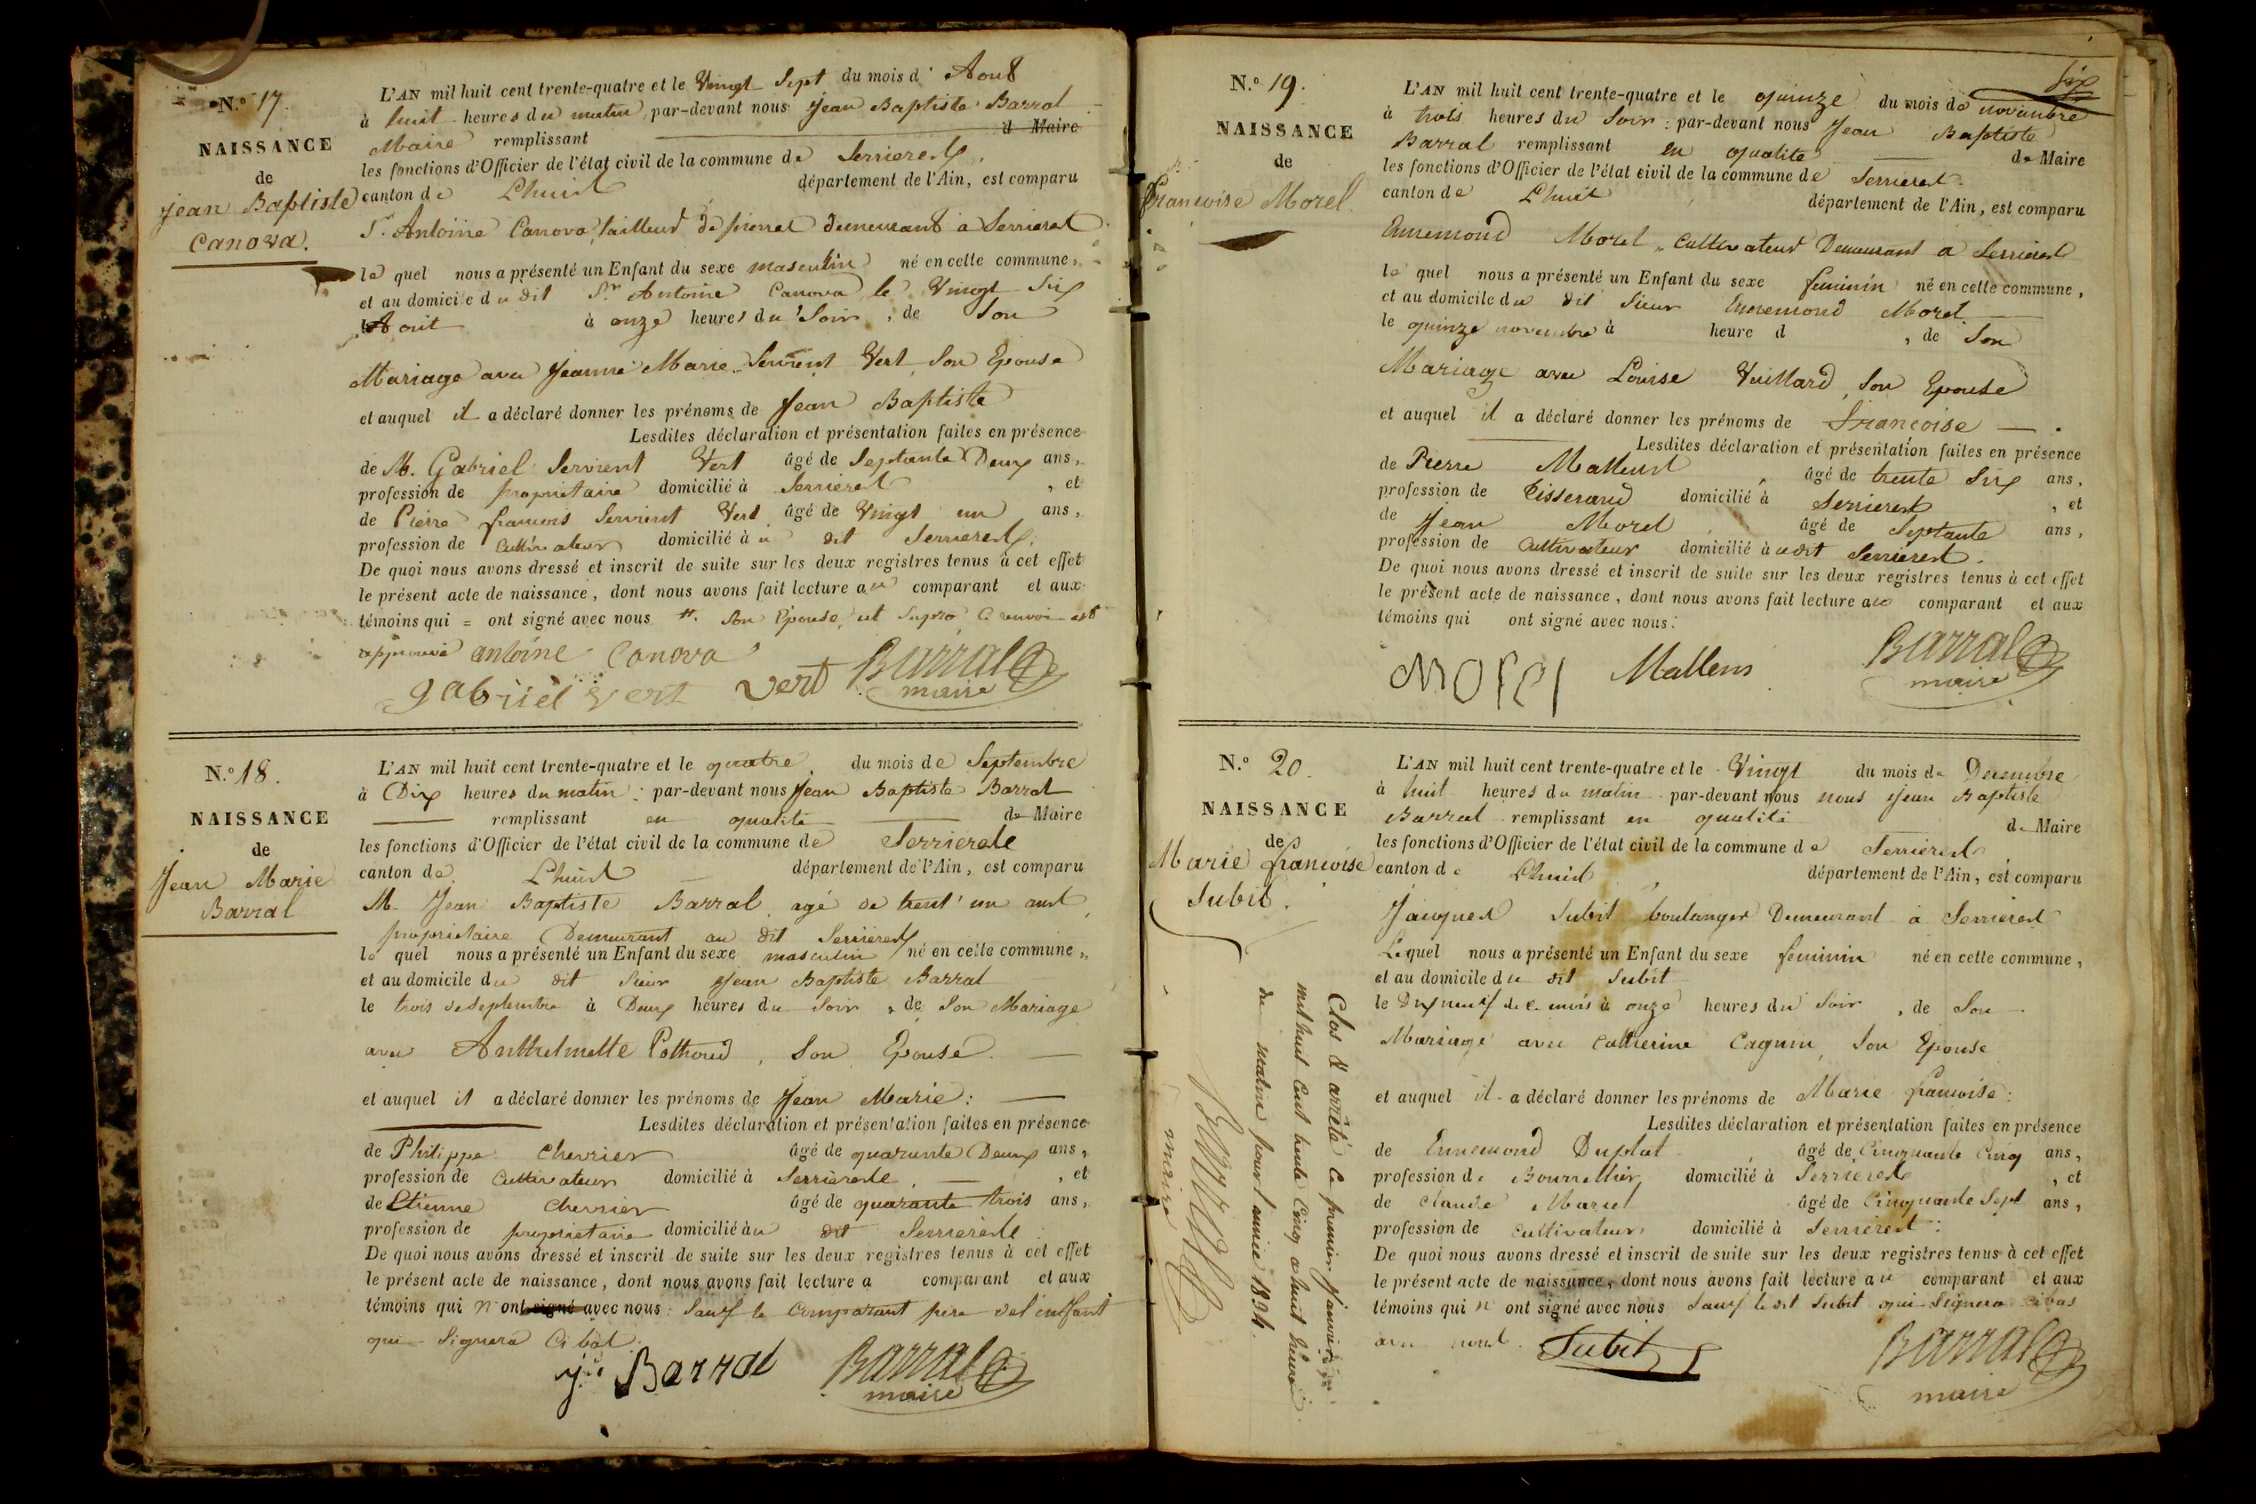 N.º 17.
NAISSANCE
de
Jean Baptiste
Canova.
L'AN mil huit cent trente-quatre et le Vingt Sept du mois d' Aout
à huit heures du matin, par-devant nous Jean Baptiste Barral
Maire remplissant d Maire
les fonctions d'Officier de l'état civil de la commune de Serrieres
canton de Lhuis département de l'Ain, est comparu
Sr. Antoine Canova, tailleur de pierres demeurant à Serrieres
le quel nous a présenté un Enfant du sexe masculin né en cette commune,
et au domicile du dit Sr. Antoine Canova le Vingt Six
Aout à onze heures du Soir, de Son
Mariage avec Jeanne Marie Servient Vert, Son Epouse
et auquel il a déclaré donner les prénoms de Jean Baptiste
Lesdites déclaration et présentation faites en présence
de M. Gabriel Servient Vert âgé de Septante Deux ans,
profession de propriétaire domicilié à Serrieres, et
de Pierre francois Servient Vert âgé de Vingt un ans,
profession de Cultivateur domicilié à u dit Serrieres.
De quoi nous avons dressé et inscrit de suite sur les deux registres tenus à cet effet
le présent acte de naissance, dont nous avons fait lecture au comparant et aux
témoins qui = ont signé avec nous #. Son Epouse, et Supra Ce renvoi est
approuvé antoine Canova
gabriel vert vert Barral
maire
N.º 18.
NAISSANCE
de
Jean Marie
Barral
L'AN mil huit cent trente-quatre et le quatre du mois de Septembre
à Dix heures du matin : par-devant nous Jean Baptiste Barral
remplissant en qualité de Maire
les fonctions d'Officier de l'état civil de la commune de Serrieres
canton de Lhuis département de l'Ain, est comparu
M. Jean Baptiste Barral agé de trent' un ans
proprietaire Demeurant au dit Serrieres
le quel nous a présenté un Enfant du sexe masculin né en cette commune,
et au domicile du dit Sieur Jean Baptiste Barral
le trois de Septembre à Deux heures du Soir, de Son Mariage
avec Anthelmette Pothoud, Son Epouse.
et auquel il a déclaré donner les prénoms de Jean Marie :
Lesdites déclaration et présentation faites en présence
de Philippe Chevrier âgé de quarante Deux ans,
profession de Cultivateur domicilié à Serrieres, et
de Etienne Chevrier âgé de quarante trois ans,
profession de proprietaire domicilié à u dit Serrieres
De quoi nous avons dressé et inscrit de suite sur les deux registres tenus à cet effet
le présent acte de naissance, dont nous avons fait lecture a comparant et aux
témoins qui n' ont signé avec nous : Sauf le Comparant pere del'enfant
qui Signera Ci bas.
Barral Barral
maire
Six
N.º 19.
NAISSANCE
de
francoise Morel.
L'AN mil huit cent trente-quatre et le quinze du mois de novembre
à trois heures du Soir : par-devant nous Jean Baptiste
Barral remplissant en qualité de Maire
les fonctions d'Officier de l'état civil de la commune de Serrieres
canton de Lhuis, département de l'Ain, est comparu
Ennemond Morel, Cultivateur Demeurant a Serrieres
le quel nous a présenté un Enfant du sexe feminin né en cette commune,
et au domicile du dit Sieur Ennemond Morel
le quinze novembre à heure d , de Son
Mariage avec Louise Vuillard, Son Epouse
et auquel il a déclaré donner les prénoms de francoise
Lesdites déclaration et présentation faites en présence
de Pierre Mallens, âgé de trente Six ans,
profession de tisserand domicilié à Serrieres, et
de Jean Morel, âgé de Septante ans,
profession de Cultivateur domicilié à udit Serrieres.
De quoi nous avons dressé et inscrit de suite sur les deux registres tenus à cet effet
le présent acte de naissance, dont nous avons fait lecture au comparant et aux
témoins qui ont signé avec nous.
Morel Mallens Barral
maire
N.º 20.
NAISSANCE
de
Marie francoise
Subit.
L'AN mil huit cent trente-quatre et le Vingt du mois de Decembre
à huit heures du matin par-devant nous nous Jean Baptiste
Barral remplissant en qualité de Maire
les fonctions d'Officier de l'état civil de la commune de Serrieres
canton de Lhuis, département de l'Ain, est comparu
Jacques Subit boulanger Demeurant à Serrieres
Lequel nous a présenté un Enfant du sexe feminin né en cette commune,
et au domicile du dit Subit
le Dix neuf de ce mois à onze heures du Soir, de Son
Mariage avec Catherine Cagnin, Son Epouse
et auquel il a déclaré donner les prénoms de Marie francoise :
Lesdites déclaration et présentation faites en présence
de Ennemond Duplat, âgé de Cinquante Cinq ans,
profession de Bourrellier domicilié à Serrieres, et
de Claude Marcel âgé de Cinquante Sept ans,
profession de Cultivateur domicilié à Serrieres :
De quoi nous avons dressé et inscrit de suite sur les deux registres tenus à cet effet
le présent acte de naissance, dont nous avons fait lecture au comparant et aux
témoins qui n' ont signé avec nous Sauf le dit Subit qui Signera Cibas
avec nous. Subit Barral
maire
Clos & arrêté Ce premier janvier
mil huit Cent trente Cinq a huit heures
du matin pour l'année 1834.
Barral
maire